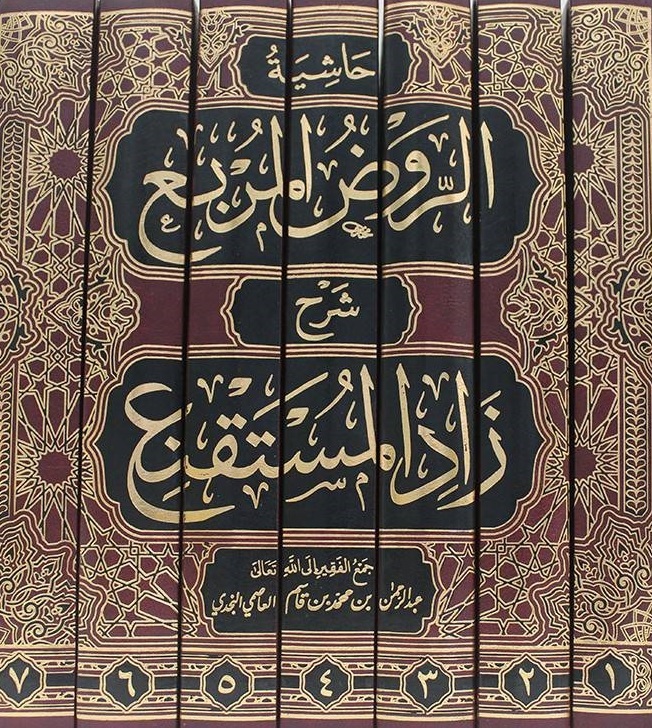 حَاشِيَةُ
الرَّوْضُ المُرْبِعِ
شَرْح
زَادِ المُسْتَقْنِعِ
جَمْعُ الفَقِيرِ إِلَى اللَّهِ تَعَالَىٰ
عبد الرحمٰن بن محمد بن قاسم العاصمي النجدي
١ ٢ ٣ ٤ ٥ ٦ ٧